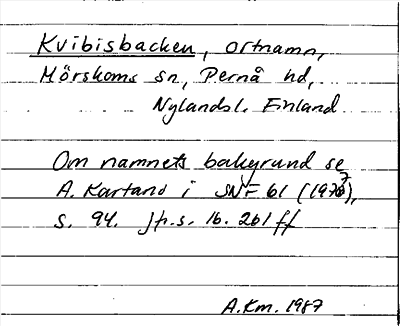 Kvibisbacken, ortnamn,
Mörskoms sn, Pernå hd,
Nylands l. Finland
Om namnets bakgrund se
A. Karland i SNF 61 (1973),
s. 94. Jfr. s. 16. 261 ff
A.Km. 1987